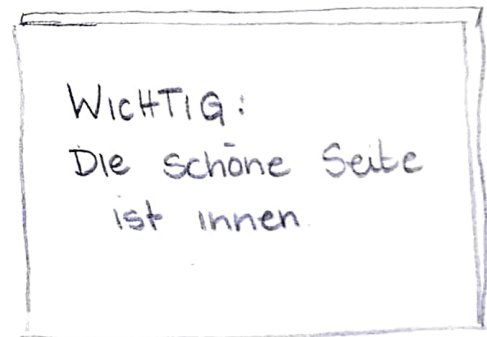 WICHTIG:
Die schöne Seite
ist innen